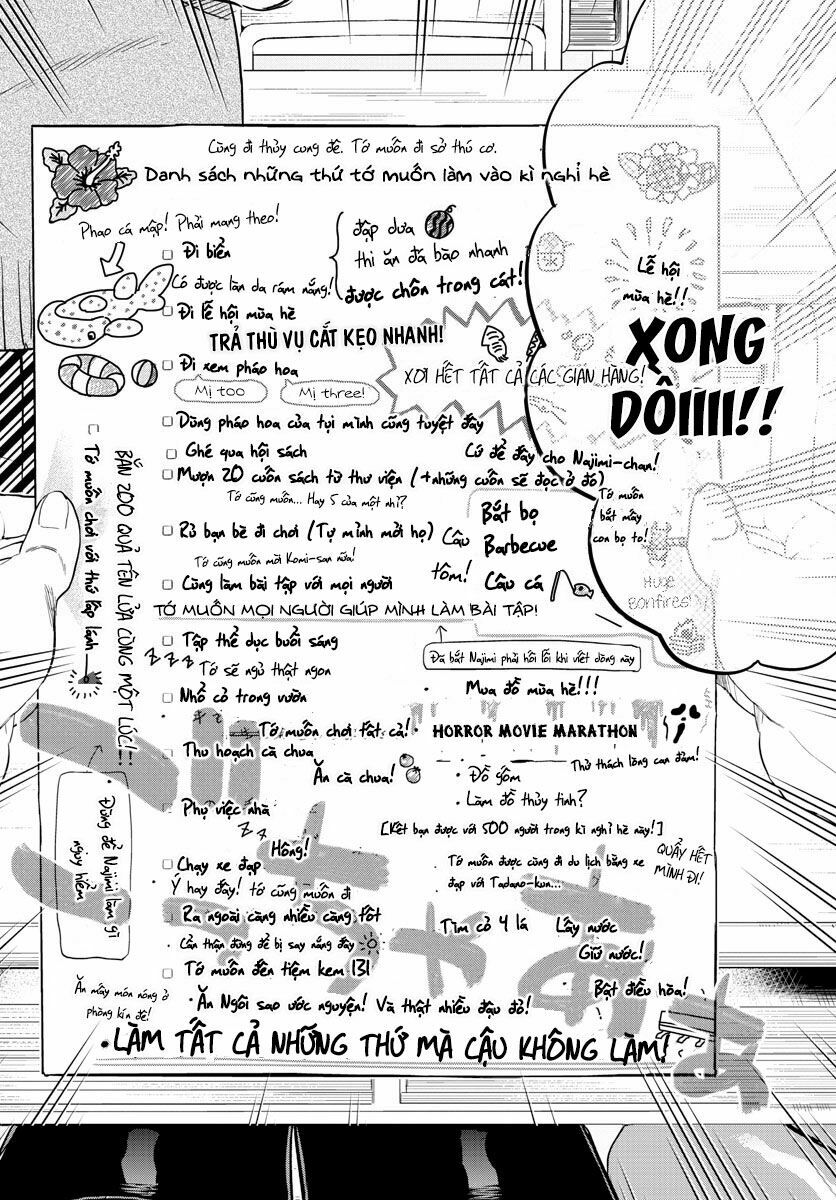 Cùng đi thủy cung đê. Tớ muốn đi sở thú cơ.
Danh sách những thứ tớ muốn làm vào kì nghỉ hè
Phao cá mập! Phải mang theo!
Đi biển
đập dưa
thi ăn đá bào nhanh
được chôn trong cát!
Có được làn da rám nắng!
Đi lễ hội mùa hè
TRẢ THÙ VỤ CẮT KẸO NHANH!
Lễ hội
mùa hè!!
XONG
DỒIIIII!!
Đi xem pháo hoa
Mị too
Mị three!
XƠI HẾT TẤT CẢ CÁC GIAN HÀNG!
Dùng pháo hoa của tụi mình cũng tuyệt đấy
Ghé qua hội sách
Cứ để đấy cho Najimi-chan!
Mượn 20 cuốn sách từ thư viện (+những cuốn sẽ đọc ở đó)
Tớ cũng muốn... Hay 5 của một nhỉ?
Rủ bạn bè đi chơi (Tự mình mời họ)
Tớ cũng muốn mời Komi-san nữa!
Câu
tôm!
Bắt bọ
Barbecue
Câu cá
Tớ muốn
bắt mấy
con bọ to!
Huge
Bonfires!
Cùng làm bài tập với mọi người
TỚ MUỐN MỌI NGƯỜI GIÚP MÌNH LÀM BÀI TẬP!
BẮN 200 QUẢ TÊN LỬA CÙNG MỘT LÚC!!
Tớ muốn chơi với thứ lấp lánh
Tập thể dục buổi sáng
Z Z Z
Tớ sẽ ngủ thật ngon
Đã bắt Najimi phải hối lỗi khi viết dòng này
Nhổ cỏ trong vườn
Mua đồ mùa hè!!!
Tớ muốn chơi tất cả!
HORROR MOVIE MARATHON
Thử thách lòng can đảm!
Thu hoạch cà chua
Ăn cà chua!
Đồ gốm
Làm đồ thủy tinh?
Đừng để Najimi làm gì
nguy hiểm
Phụ việc nhà
Z Z
[Kết bạn được với 500 người trong kì nghỉ hè này!]
Hông!
Chạy xe đạp
Ý hay đấy! tớ cũng muốn đi
Tớ muốn được cùng đi du lịch bằng xe
đạp với Tadano-kun...
QUẨY HẾT
MÌNH ĐI!
Ra ngoài càng nhiều càng tốt
Cẩn thận đừng để bị say nắng đấy
Tìm cỏ 4 lá
Lấy nước
Giữ nước!
Bật điều hòa!
Tớ muốn đến tiệm kem 131
Ăn mấy món nóng ở
phòng kín đê!
Ăn Ngôi sao ước nguyện! Và thật nhiều đậu đỏ!
LÀM TẤT CẢ NHỮNG THỨ MÀ CẬU KHÔNG LÀM!